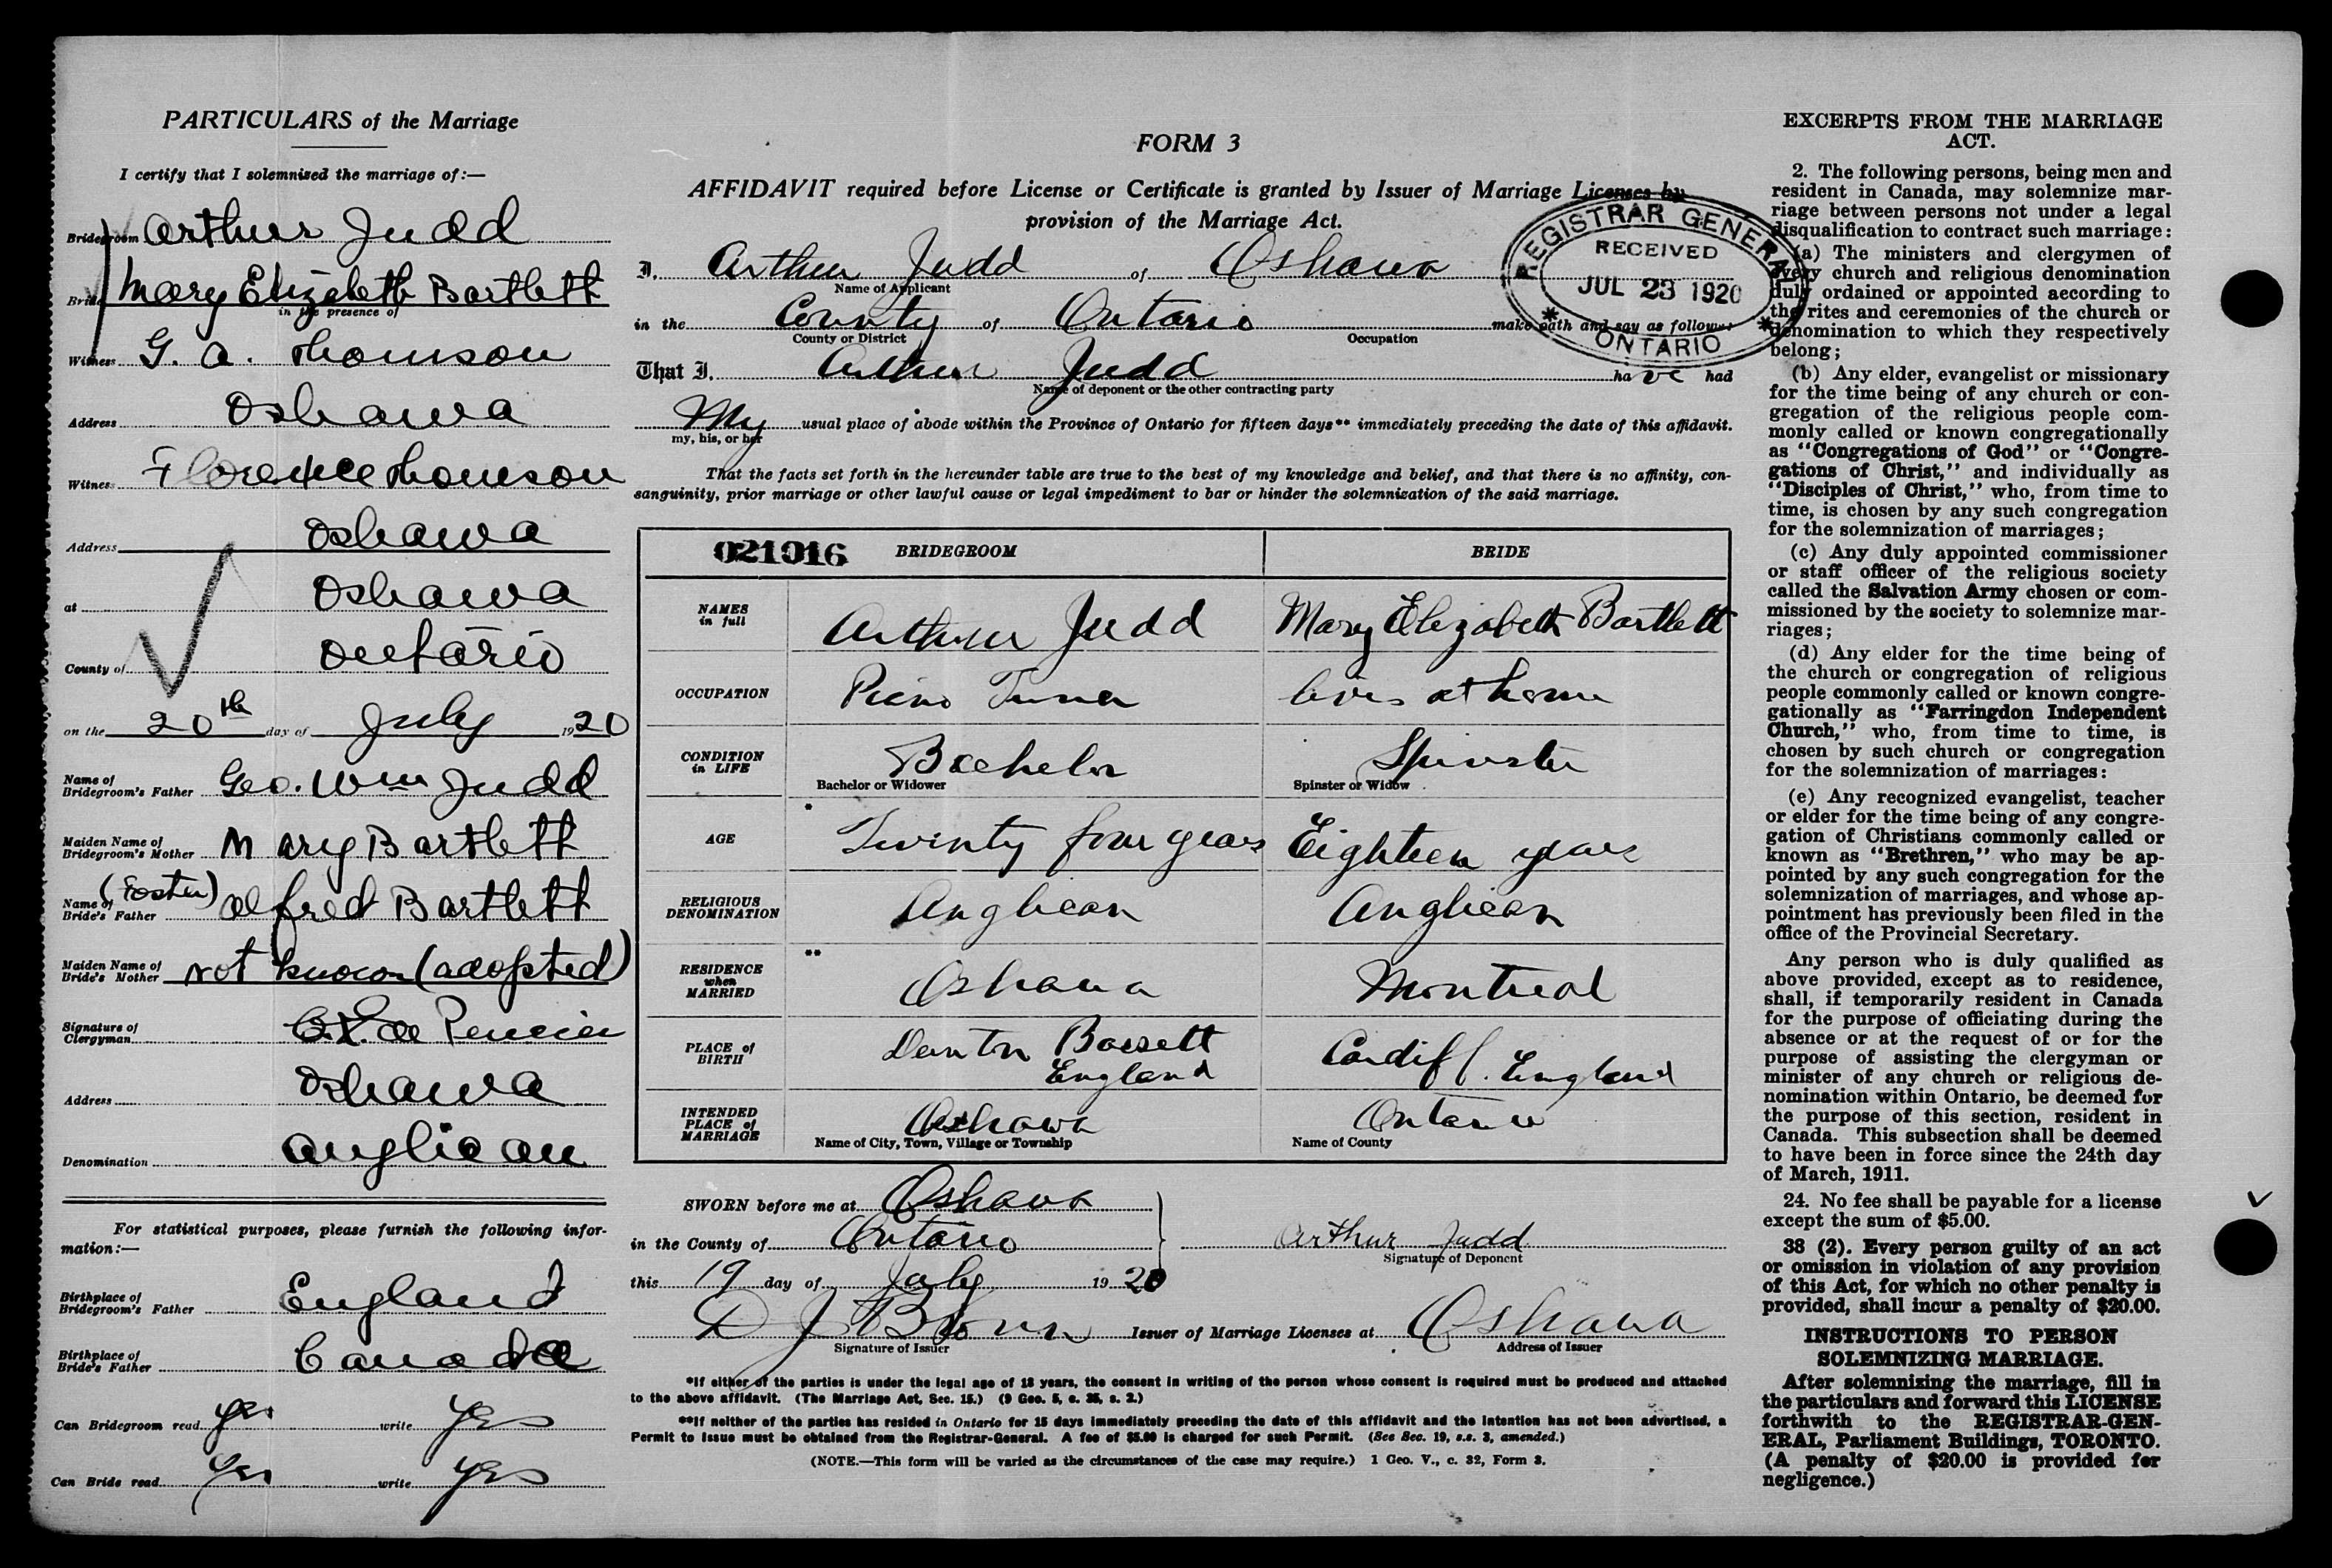 PARTICULARS of the Marriage
I certify that I solemnized the marriage of:—
Bridegroom Arthur Judd
Bride Mary Elizabeth Bartlett
in the presence of
Witness G. A. Thomson
Address Oshawa
Witness Florence Thomson
Address Oshawa
at Oshawa
County of Ontario
on the 20th day of July 1920
Name of
Bridegroom's Father Geo. Wm Judd
Maiden Name of
Bridegroom's Mother Mary Bartlett
(Foster)
Name of
Bride's Father Alfred Bartlett
Maiden Name of
Bride's Mother not known (adopted)
Signature of
Clergyman de Pencier
Address Oshawa
Denomination Anglican
For statistical purposes, please furnish the following infor-
mation:—
Birthplace of
Bridegroom's Father England
Birthplace of
Bride's Father Canada
Can Bridegroom read yes write yes
Can Bride read yes write yes
FORM 3
AFFIDAVIT required before License or Certificate is granted by Issuer of Marriage Licenses by
provision of the Marriage Act.
REGISTRAR GENERAL
RECEIVED
JUL 23 1920
* ONTARIO *
I, Arthur Judd of Oshawa
Name of Applicant
in the County of Ontario make oath and say as follows:
County or District Occupation
That I, Arthur Judd have had
Name of deponent or the other contracting party
My usual place of abode within the Province of Ontario for fifteen days** immediately preceding the date of this affidavit.
my, his, or her
That the facts set forth in the hereunder table are true to the best of my knowledge and belief, and that there is no affinity, con-
sanguinity, prior marriage or other lawful cause or legal impediment to bar or hinder the solemnization of the said marriage.
021016 BRIDEGROOM BRIDE
NAMES
in full Arthur Judd Mary Elizabeth Bartlett
OCCUPATION Piano Tuner lives at home
CONDITION
in LIFE Bachelor Spinster
Bachelor or Widower Spinster or Widow
AGE * Twenty four years Eighteen years
RELIGIOUS
DENOMINATION Anglican Anglican
RESIDENCE
when
MARRIED ** Oshawa Montreal
PLACE of
BIRTH Denton Bassett
England Cardiff. England
INTENDED
PLACE of
MARRIAGE Oshawa Ontario
Name of City, Town, Village or Township Name of County
SWORN before me at Oshawa
in the County of Ontario Arthur Judd
Signature of Deponent
this 19 day of July 1920
D J Brown Issuer of Marriage Licenses at Oshawa
Signature of Issuer Address of Issuer
*If either of the parties is under the legal age of 18 years, the consent in writing of the person whose consent is required must be produced and attached
to the above affidavit. (The Marriage Act, Sec. 15.) (9 Geo. 5, c. 35, s. 2.)
**If neither of the parties has resided in Ontario for 15 days immediately preceding the date of this affidavit and the intention has not been advertised, a
Permit to Issue must be obtained from the Registrar-General. A fee of $5.00 is charged for such Permit. (See Sec. 19, s.s. 3, amended.)
(NOTE.—This form will be varied as the circumstances of the case may require.) 1 Geo. V., c. 32, Form 3.
EXCERPTS FROM THE MARRIAGE
ACT.
2. The following persons, being men and
resident in Canada, may solemnize mar-
riage between persons not under a legal
disqualification to contract such marriage:
(a) The ministers and clergymen of
every church and religious denomination
duly ordained or appointed according to
the rites and ceremonies of the church or
denomination to which they respectively
belong;
(b) Any elder, evangelist or missionary
for the time being of any church or con-
gregation of the religious people com-
monly called or known congregationally
as "Congregations of God" or "Congre-
gations of Christ," and individually as
"Disciples of Christ," who, from time to
time, is chosen by any such congregation
for the solemnization of marriages;
(c) Any duly appointed commissioner
or staff officer of the religious society
called the Salvation Army chosen or com-
missioned by the society to solemnize mar-
riages;
(d) Any elder for the time being of
the church or congregation of religious
people commonly called or known congre-
gationally as "Farringdon Independent
Church," who, from time to time, is
chosen by such church or congregation
for the solemnization of marriages:
(e) Any recognized evangelist, teacher
or elder for the time being of any congre-
gation of Christians commonly called or
known as "Brethren," who may be ap-
pointed by any such congregation for the
solemnization of marriages, and whose ap-
pointment has previously been filed in the
office of the Provincial Secretary.
Any person who is duly qualified as
above provided, except as to residence,
shall, if temporarily resident in Canada
for the purpose of officiating during the
absence or at the request of or for the
purpose of assisting the clergyman or
minister of any church or religious de-
nomination within Ontario, be deemed for
the purpose of this section, resident in
Canada. This subsection shall be deemed
to have been in force since the 24th day
of March, 1911.
24. No fee shall be payable for a license
except the sum of $5.00.
38 (2). Every person guilty of an act
or omission in violation of any provision
of this Act, for which no other penalty is
provided, shall incur a penalty of $20.00.
INSTRUCTIONS TO PERSON
SOLEMNIZING MARRIAGE.
After solemnizing the marriage, fill in
the particulars and forward this LICENSE
forthwith to the REGISTRAR-GEN-
ERAL, Parliament Buildings, TORONTO.
(A penalty of $20.00 is provided for
negligence.)